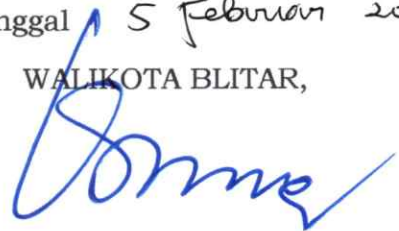 nggal 5 Februari 20
WALIKOTA BLITAR,